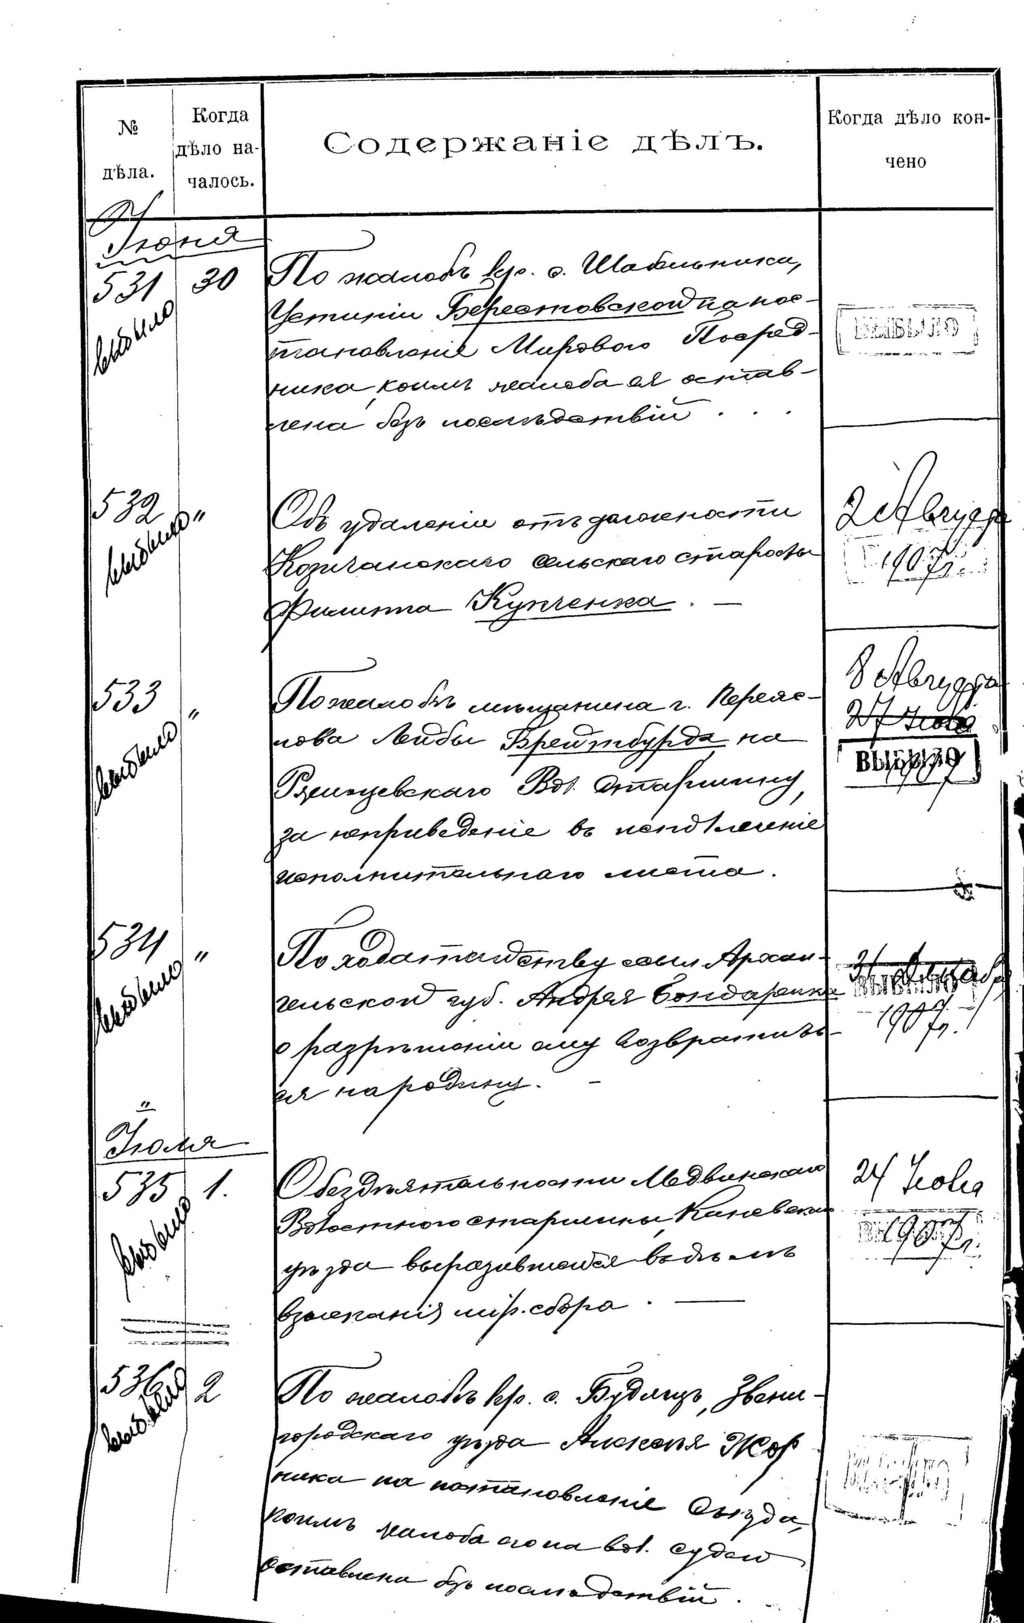 № дѣла.
Когда дѣло началось.
Содержаніе дѣлъ.
Когда дѣло кончено
Іюня
531 30
выбыло
По жалобѣ кр. с. Шабельника,
Устиніи Берестовской на пос-
тановленіе Мирового Посред-
ника, коимъ жалоба ея остав-
лена безъ послѣдствій . . .
ВЫБЫЛО
532 "
выбыло
Объ удаленіи отъ должности
Козичанскаго сельскаго старосты
Филиппа Купченка. —
2 Августа
1907 г.
533 "
выбыло
По жалобѣ мѣщанина г. Переяс-
лова Лейбы Брейтбурда, на
Ржищевскаго Вол. Старшину,
за неприведеніе въ исполненіе
исполнительнаго листа.
8 Августа
ВЫБЫЛО
1907
534 "
выбыло
По ходатайству ссыл. Архан-
гельской губ. Андрея Бондаренка
о разрѣшеніи ему возвратить-
ся на родину. —
31 Декабря
ВЫБЫЛО
1907 г.
"
Іюля
535 1.
выбыло
О бездѣятельности Медвинскаго
Волостного старшины, Каневскаго
уѣзда выразившейся въ дѣлѣ
взысканія мір. сбора . —
24
1907 г.
536 2
выбыло
По жалобѣ кр. с. Будищъ, Звени-
городскаго уѣзда Алексѣя Жор
ника на постановленіе Съѣзда,
коимъ жалоба его на вол. судей
оставлена безъ послѣдствій.